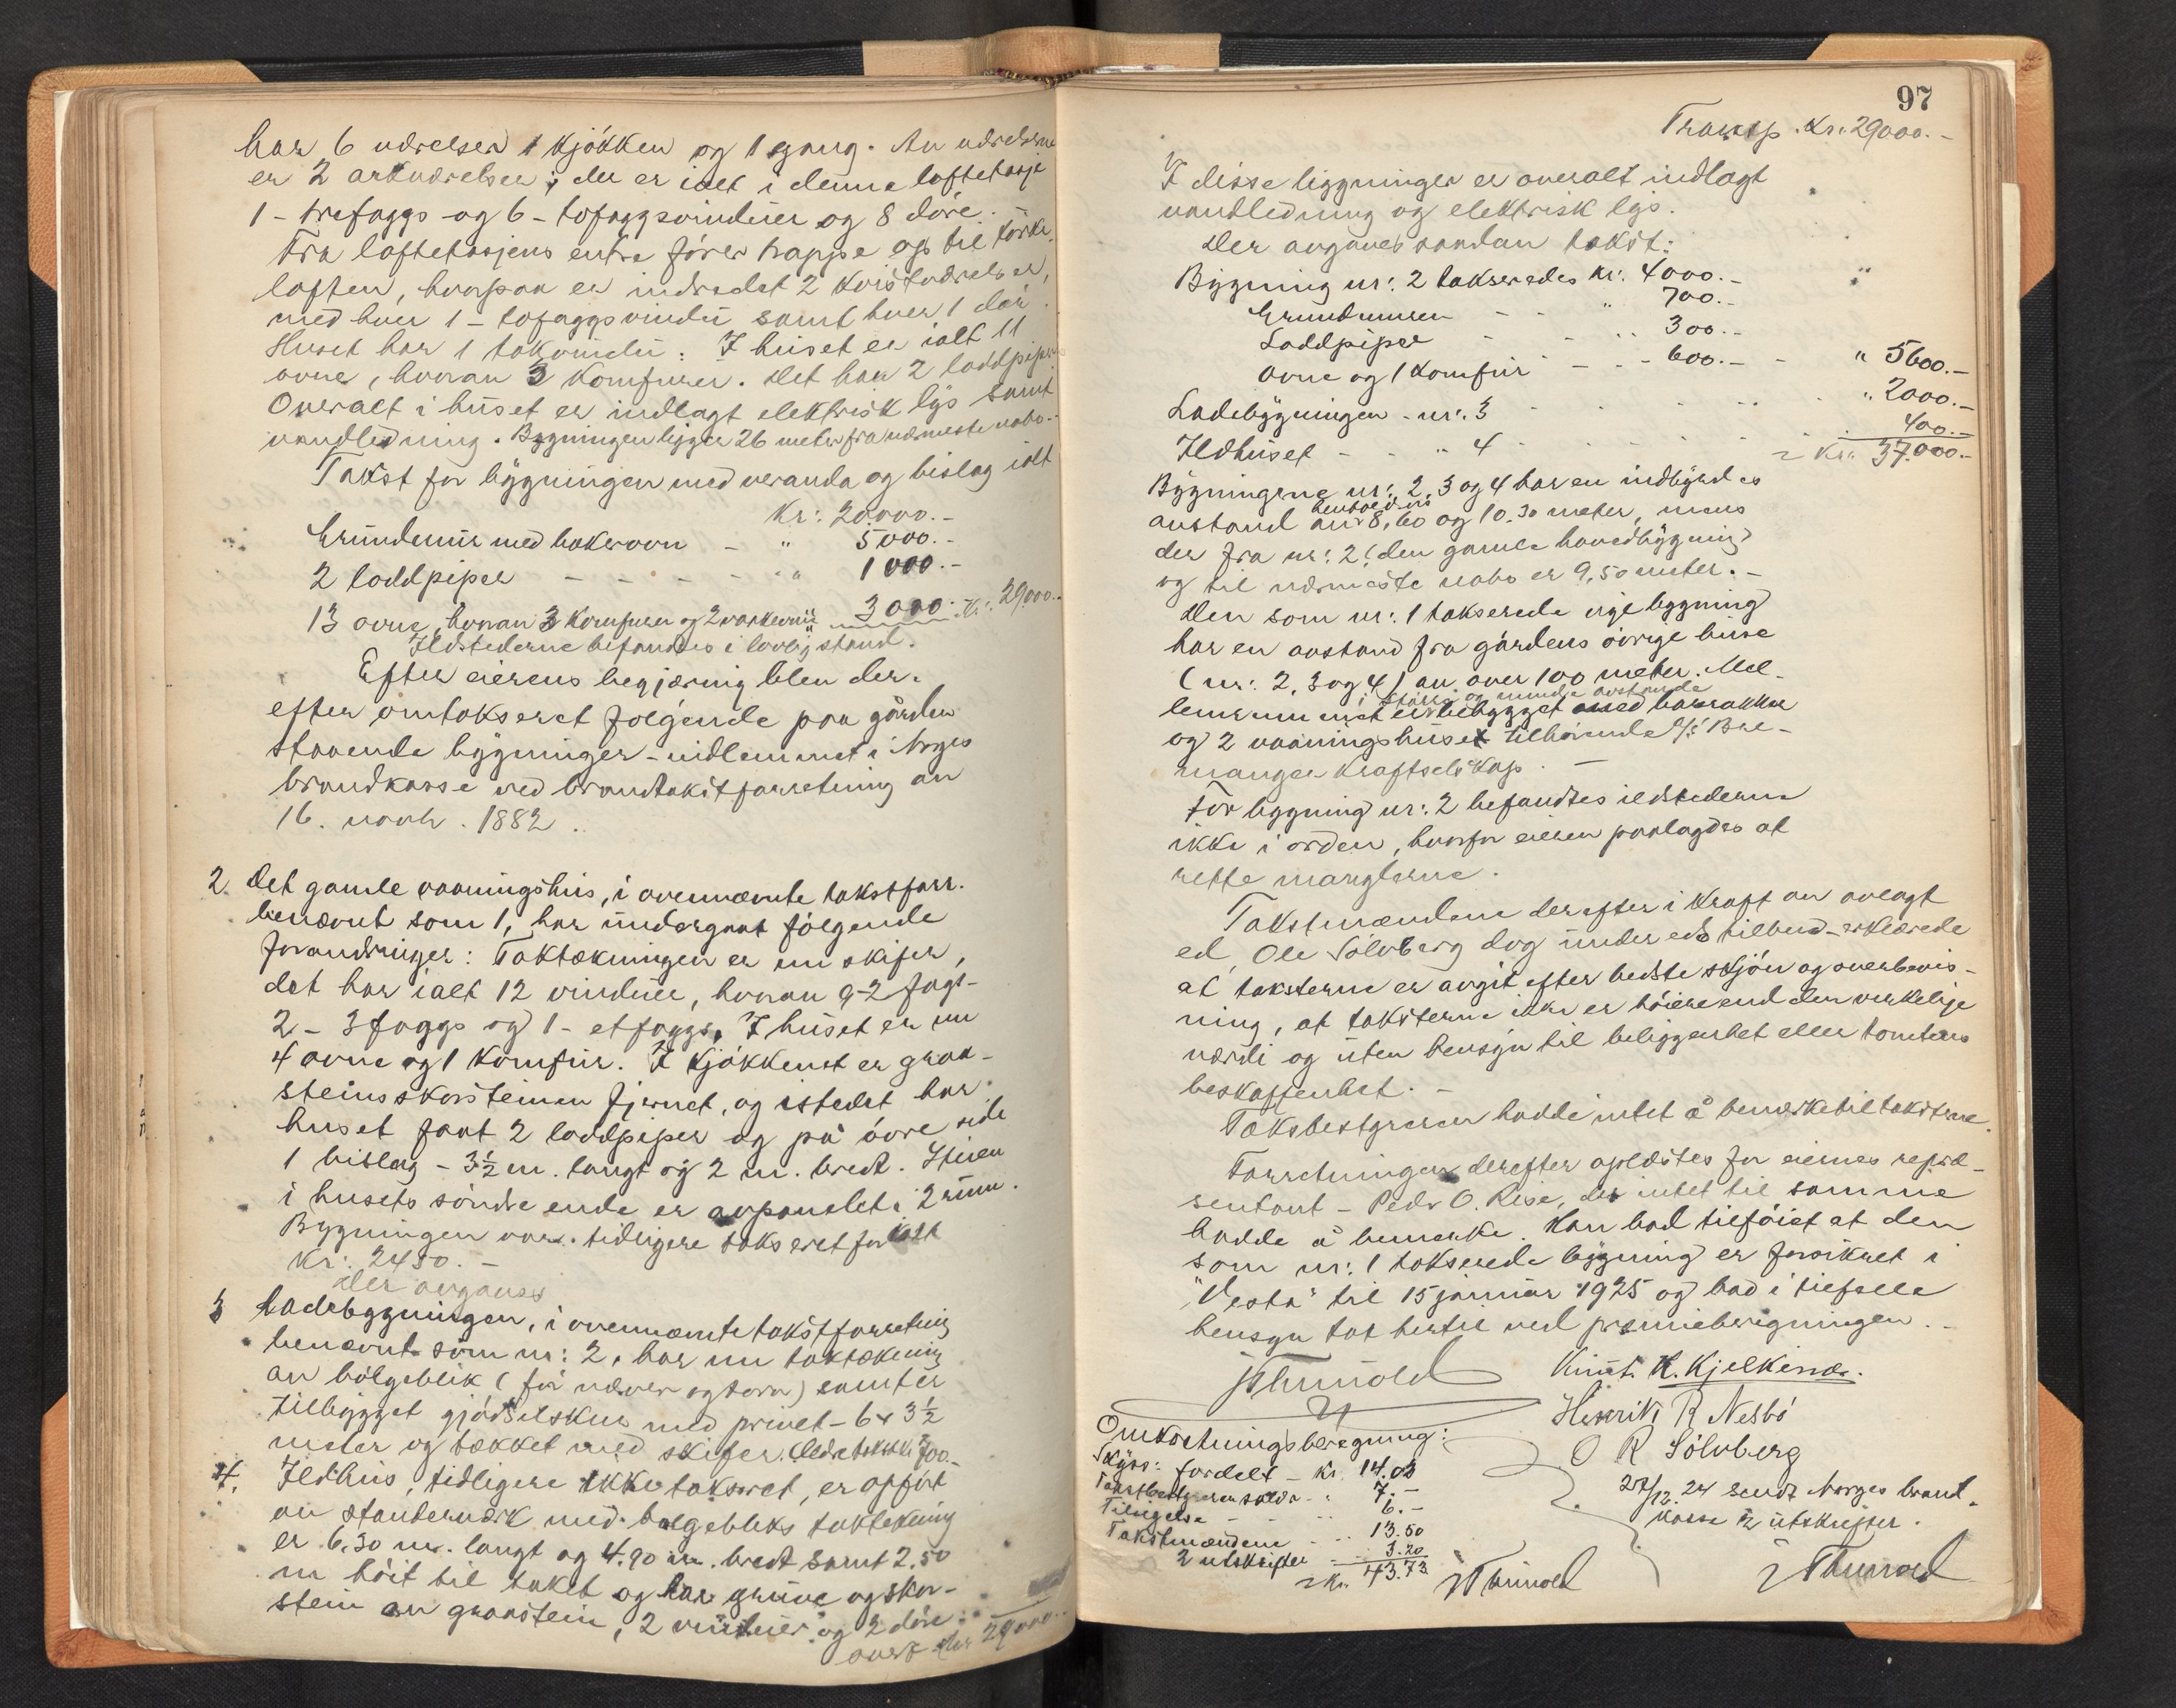 har 6 værelser 1 kjökken og 1 gang. Av værelserne
er 2 arkværelser; der er ialt i denne loftetasje
1 - trefaggs - og 6 - tofaggsvinduer og 8 döre. -
Fra loftetasjens entre förer trappe op til törke-
loften, hvorpaa er indredet 2 kvistværelser,
med hver 1 - tofaggsvindu samt hver 1 dör.
Huset har 1 takvindu. I huset er ialt 11
ovne, hvorav 3 komfurer. Det har 2 loddpiper
Overalt i huset er indlagt elektrisk lys samt
vandledning. Bygningen ligger 26 meter fra nærmeste nabo.-
Takst for bygningen med veranda og bislag ialt
Kr: 20.000.-
Grundmur med bakerovn - " 5000.-
2 loddpiper - - - - - " 1000.-
13 ovne, hvorav 3 komfurer og 2 3000.- Kr. 29000.-
Ildstederne befandtes i lovlig stand.
Efter eierens begjæring blev der-
efter omtakseret følgende paa gården
staaende bygninger - indlemmet i Norges
brandkasse ved brandtakstforretning av
16. novb. 1882.
2. Det gamle vaaningshus, i ovennævnte takstforr.
benævnt som 1, har undergaat følgende
forandringer: Taktækningen er nu skifer,
det har ialt 12 vinduer, hvorav 9-2 fags-
2 - 3 faggs og 1 - etfaggs. I huset er nu
4 ovne og 1 komfur. I kjökkenet er graa-
steinsskorsteinen fjernet, og istedet har
huset faat 2 loddpiper og på övre side
1 bislag - 3½ m. langt og 2 m. bredt. Stuen
i husets söndre ende er avpanelet i 2 rum.
Bygningen var tidligere takseret for ialt
Kr: 2450. -
Der avgaves
3 Ladebygningen, i ovennævnte takstforretning
benævnt som nr: 2, har nu taktækning
av bölgeblik (för næver og torv) samt er
tilbygget gjödselskur med privet - 6 x 3½
meter og tækket med skifer. Ældre takst kr 700.-
4. Ildhus, tidligere ikke takseret, er opfört
av standerværk med bølgebliks taktækning
er 6.30 m. langt og 4.90 m. bredt samt 2.50
m höit til taket og har grue og skor-
stein av graastein, 2 vinduer og 2 döre.
overf. Kr 29000.-
97
Transp. Kr. 29000.-
I disse bygninger er overalt indlagt
vandledning og elektrisk lys.
Der avgaves saadan takst:
Bygning nr: 2 takseredes kr: 4000.-
Grundmuren - - " 700.-
Loddpiper - - " 300.-
Ovne og 1 komfur - - - 600.- - " 5600.-
Ladebygningen - nr: 3 - - - - " 2000.-
Ildhuset - - " 4 - - - - 400.-
= Kr. 37.000.-
Bygningerne nr: 2, 3 og 4 har en indbyrdes
avstand av henholdsvis 8,60 og 10.30 meter, mens
der fra nr: 2 (den gamle hovedbygning)
og til nærmeste nabo er 9,50 meter. -
Den som nr: 1 takserede nye bygning
har en avstand fra gårdens övrige huse
(nr: 2, 3 og 4) av over 100 meter. Mel-
lemrummet er i större og mindre avstande bebygget med barakker
og 2 vaaningshuse tilhörende A/S Bre-
manger Kraftselskap. -
For bygning nr: 2 befandtes ildstederne
ikke i orden, hvorfor eieren paalagdes at
rette manglerne.
Takstmændene derefter i kraft av avlagt
ed, Ole Sölvberg dog under eds tilbud - erklærede
at taksterne er avgit efter bedste skjön og overbevis-
ning, at taksterne ikke er höiere end den virkelige
værdi og uten hensyn til beliggenhet eller tomtens
beskaffenhet. -
Takstbestyreren hadde intet å bemerke til taksterne.
Forretningen derefter oplæstes for eiernes repræ-
sentant - Peder O. Rise, der intet til samme
hadde å bemerke. Han bad tilföiet at den
som nr: 1 takserede bygning er forsikret i
"Vesta" til 15 januar 1925 og bad i tilfælle
hensyn tat hertil ved præmieberegningen. -
J Thunold Knut K. Kjelkenæs.
Henrik R Nesbö
O R Sölvberg
Omkostningsberegning:
Skyss: fordelt - kr. 14.03
Takstbestyreren - " 7.-
Tilsigelse - - " 6.-
Takstmændene - " 13.50
2 utskrifter - 3.20
= Kr. 43.73
J Thunold
27/12.24 sendt Norges brand-
kasse 2 utskrifter.
J Thunold